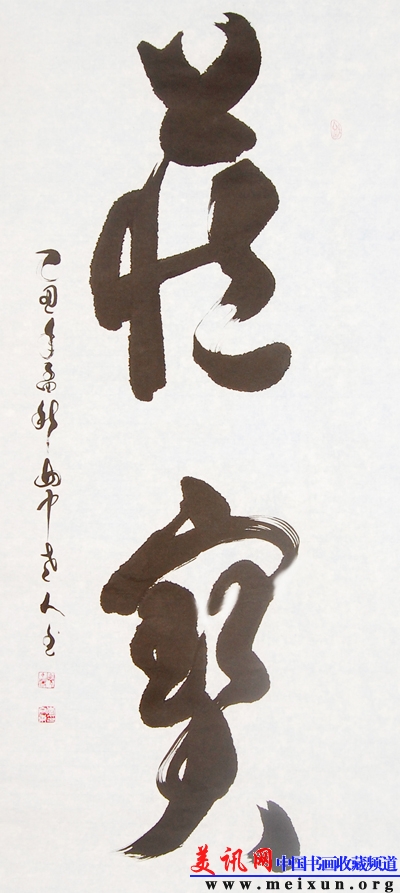 藏寶
己丑年孟秋山中老人书
美讯网 中国书画收藏频道
www.meixun.org